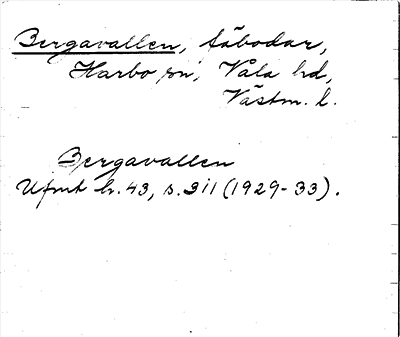 Bergavallen, säbodar,
Harbo sn, Våla hd,
Västm. l.
Bergavallen
Ufmt h. 43, s. 311 (1929-33).